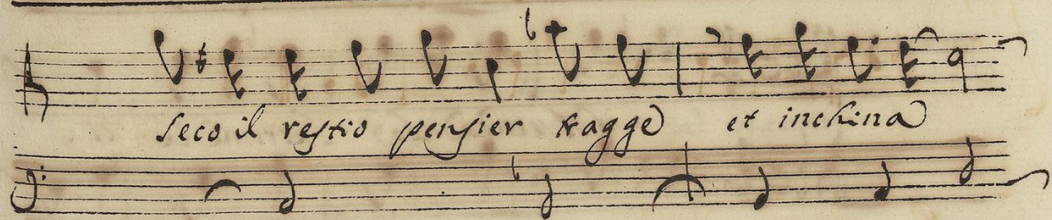 seco il restio pensier tragge et inchina